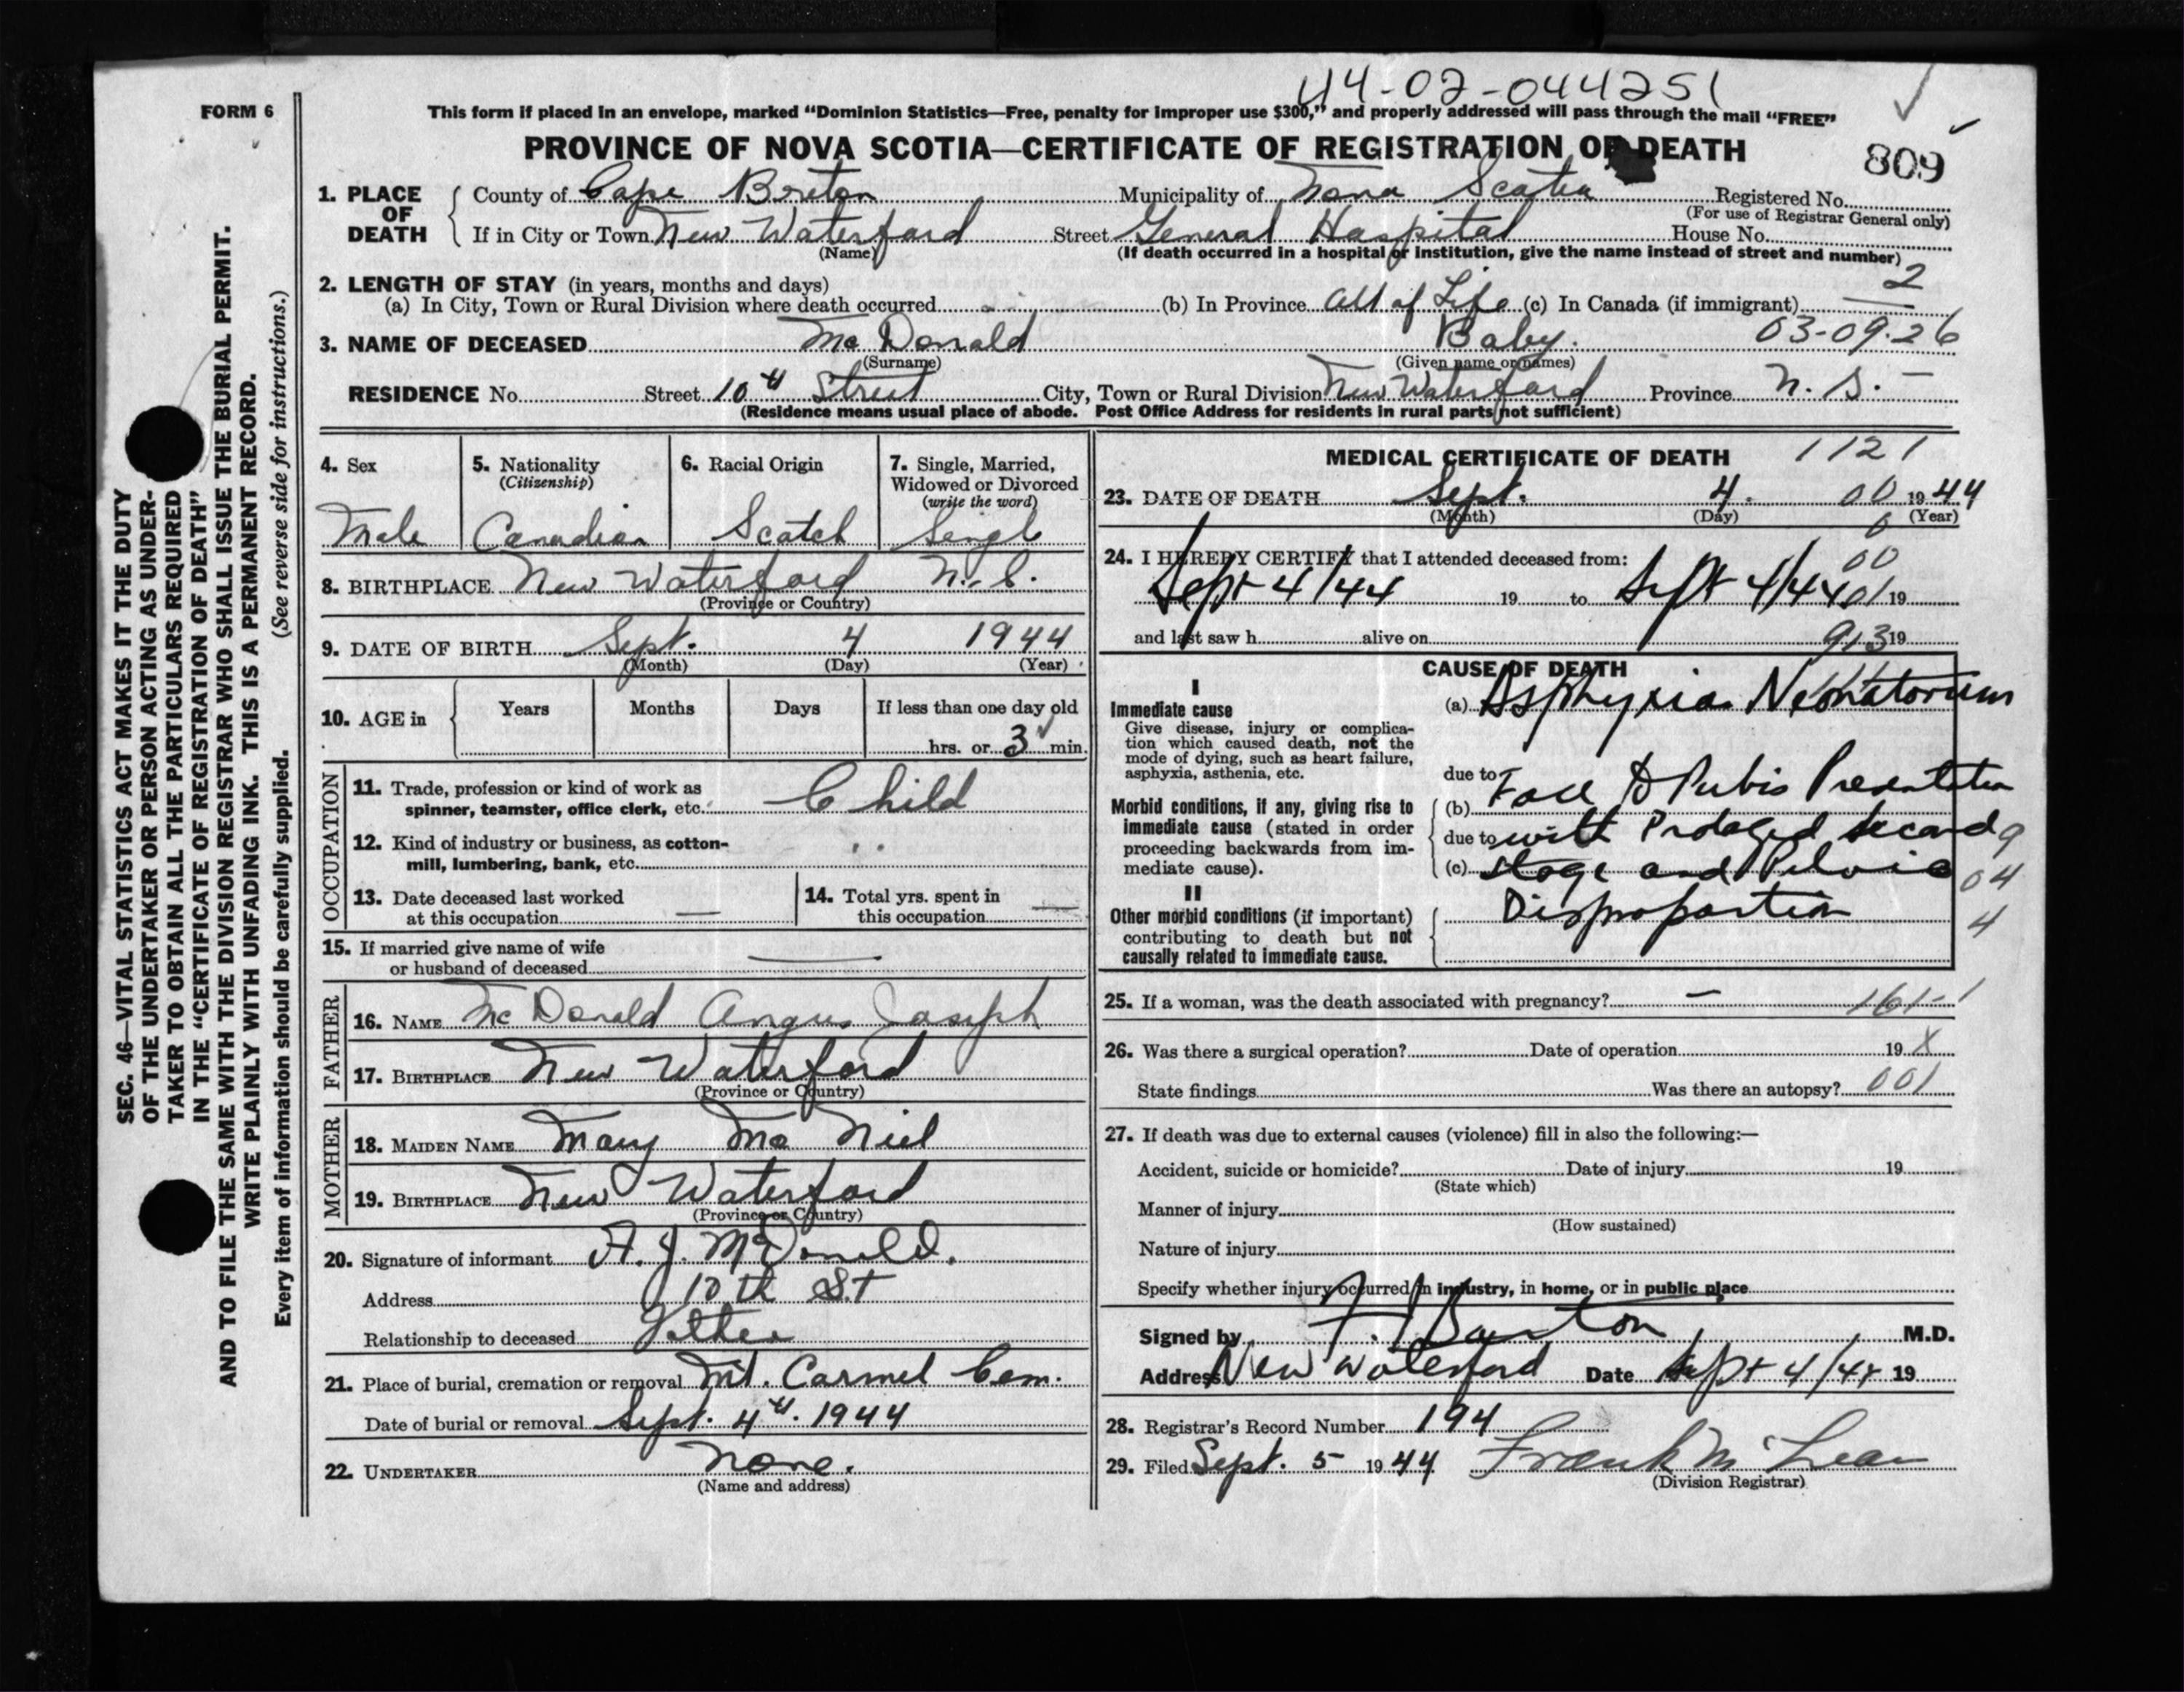 44-02-044251
FORM 6
This form if placed in an envelope, marked "Dominion Statistics—Free, penalty for improper use $300," and properly addressed will pass through the mail "FREE"
PROVINCE OF NOVA SCOTIA—CERTIFICATE OF REGISTRATION OF DEATH
809
1. PLACE OF DEATH
County of Cape Breton Municipality of Nova Scotia Registered No.
(For use of Registrar General only)
If in City or Town New Waterford Street General Hospital House No.
(Name) (If death occurred in a hospital or institution, give the name instead of street and number)
2. LENGTH OF STAY (in years, months and days) 2
(a) In City, Town or Rural Division where death occurred (b) In Province All of Life (c) In Canada (if immigrant)
3. NAME OF DECEASED Mc Donald Baby. 03-09-26
(Surname) (Given name or names)
RESIDENCE No. Street 10th Street City, Town or Rural Division New Waterford Province N. S. —
(Residence means usual place of abode. Post Office Address for residents in rural parts not sufficient)
SEC. 46—VITAL STATISTICS ACT MAKES IT THE DUTY
OF THE UNDERTAKER OR PERSON ACTING AS UNDER-
TAKER TO OBTAIN ALL THE PARTICULARS REQUIRED
IN THE "CERTIFICATE OF REGISTRATION OF DEATH"
AND TO FILE THE SAME WITH THE DIVISION REGISTRAR WHO SHALL ISSUE THE BURIAL PERMIT.
WRITE PLAINLY WITH UNFADING INK. THIS IS A PERMANENT RECORD.
Every item of information should be carefully supplied. (See reverse side for instructions.)
4. Sex
Male
5. Nationality
(Citizenship)
Canadian
6. Racial Origin
Scotch
7. Single, Married,
Widowed or Divorced
(write the word)
Single
8. BIRTHPLACE New Waterford N. S.
(Province or Country)
9. DATE OF BIRTH Sept. 4 1944
(Month) (Day) (Year)
10. AGE in Years Months Days If less than one day old
hrs. or 3 min.
OCCUPATION
11. Trade, profession or kind of work as
spinner, teamster, office clerk, etc. Child
12. Kind of industry or business, as cotton-
mill, lumbering, bank, etc.
13. Date deceased last worked
at this occupation —
14. Total yrs. spent in
this occupation —
15. If married give name of wife
or husband of deceased —
FATHER
16. NAME Mc Donald Angus Joseph
17. BIRTHPLACE New Waterford
(Province or Country)
MOTHER
18. MAIDEN NAME Mary Mc Niel
19. BIRTHPLACE New Waterford
(Province or Country)
20. Signature of informant A. J. McDonald.
Address 10th St
Relationship to deceased Father
21. Place of burial, cremation or removal Mt. Carmel Cem.
Date of burial or removal Sept. 4th. 1944
22. UNDERTAKER None.
(Name and address)
MEDICAL CERTIFICATE OF DEATH 1121
23. DATE OF DEATH Sept. 4. 00 1944
(Month) (Day) (Year)
24. I HEREBY CERTIFY that I attended deceased from: 00
Sept 4/44 19 to Sept 4/44 01 19
and last saw h alive on 913 19
CAUSE OF DEATH
I
Immediate cause
Give disease, injury or complica-
tion which caused death, not the
mode of dying, such as heart failure,
asphyxia, asthenia, etc.
(a) Asphyxia Neonatorum
Morbid conditions, if any, giving rise to
immediate cause (stated in order
proceeding backwards from im-
mediate cause).
due to
(b) Face to Pubis Presentation
due to with Prolonged second 9
(c) stage and Pelvic 04
II
Other morbid conditions (if important)
contributing to death but not
causally related to immediate cause.
Disproportion 4
25. If a woman, was the death associated with pregnancy? — 161-1
26. Was there a surgical operation? Date of operation 19 X
State findings Was there an autopsy? 001
27. If death was due to external causes (violence) fill in also the following:—
Accident, suicide or homicide? Date of injury 19
(State which)
Manner of injury
(How sustained)
Nature of injury
Specify whether injury occurred in industry, in home, or in public place
Signed by F. Barton M.D.
Address New Waterford Date Sept 4/44 19
28. Registrar's Record Number 194
29. Filed Sept. 5 1944 Frank McLean
(Division Registrar)